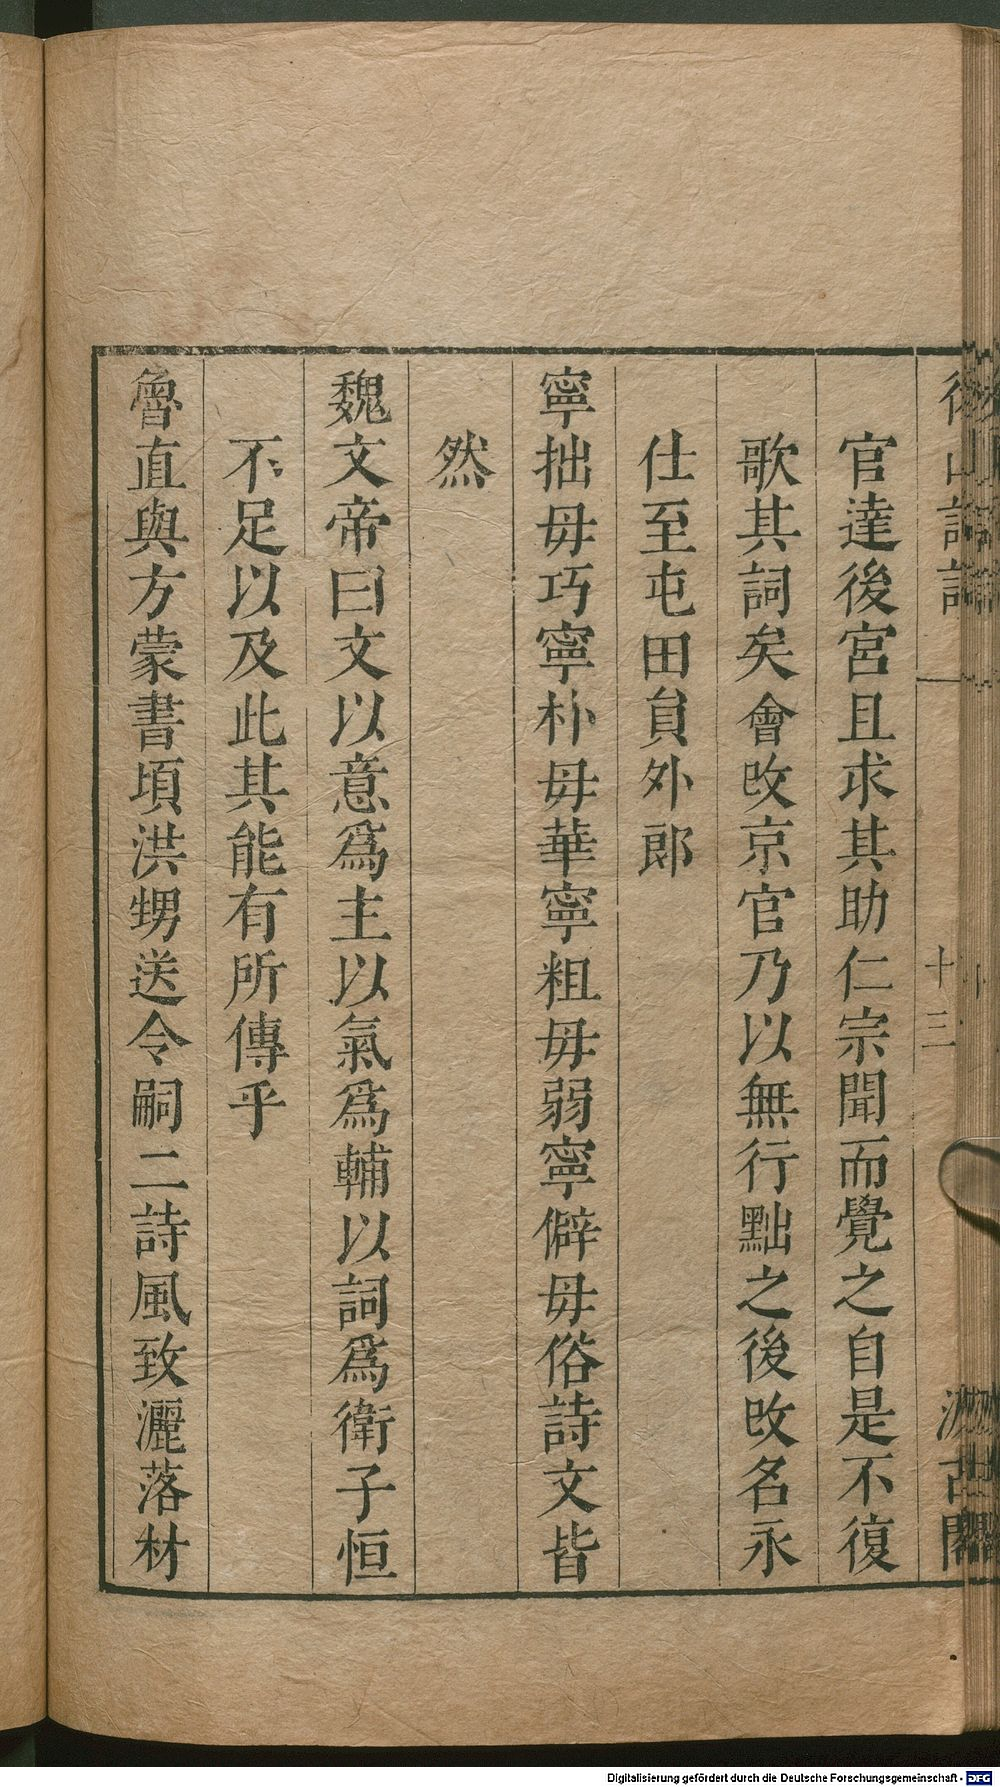 後山詩話
十三
汲古閣
官達後宮且求其助仁宗聞而覺之自是不復
歌其詞矣會改京官乃以無行黜之後改名永
仕至屯田員外郎
寧拙毋巧寧朴毋華寧粗毋弱寧僻毋俗詩文皆
然
魏文帝曰文以意爲主以氣爲輔以詞爲衛子恒
不足以及此其能有所傳乎
魯直與方蒙書頃洪甥送令嗣二詩風致灑落材
Digitalisierung gefördert durch die Deutsche Forschungsgemeinschaft - DFG